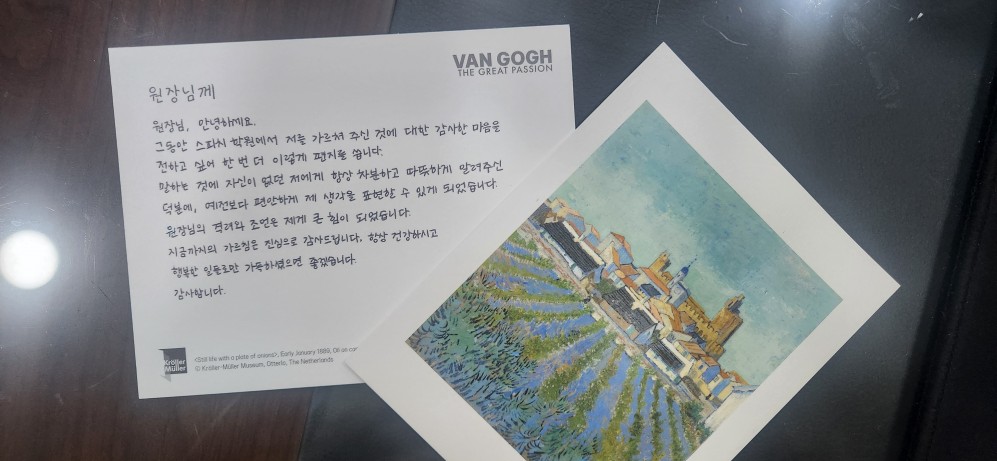 VAN GOGH
THE GREAT PASSION
원장님께
원장님, 안녕하세요.
그동안 스피치 학원에서 저를 가르쳐 주신 것에 대한 감사한 마음을
전하고 싶어 한 번 더 이렇게 편지를 씁니다.
말하는 것에 자신이 없던 저에게 항상 차분하고 따뜻하게 알려주신
덕분에, 예전보다 편안하게 제 생각을 표현할 수 있게 되었습니다.
원장님의 격려와 조언은 제게 큰 힘이 되었습니다.
지금까지의 가르침은 진심으로 감사드립니다. 항상 건강하시고
행복한 일들로만 가득하셨으면 좋겠습니다.
감사합니다.
Kröller
Müller
<Still life with a plate of onions>, Early January 1889, Oil on
© Kröller-Müller Museum, Otterlo, The Netherlands